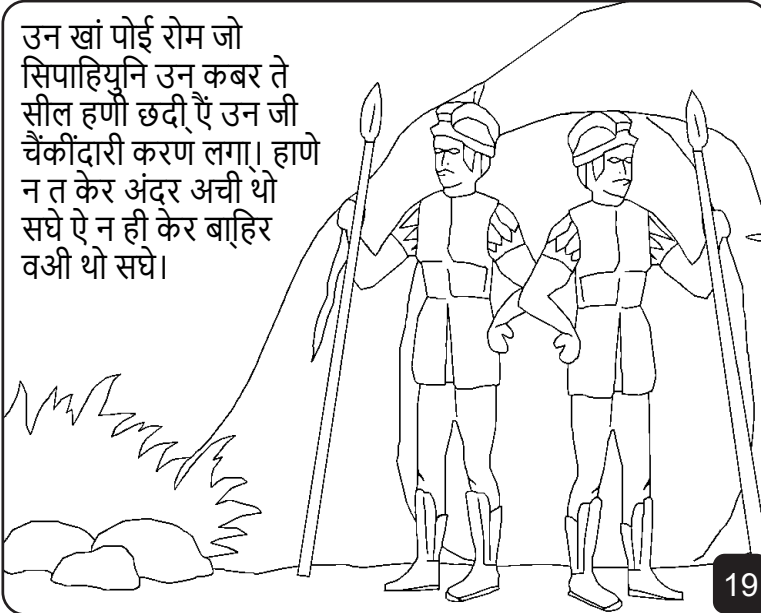 उन खां पोई रोम जो
सिपाहियुनि उन कबर ते
सील हणी छदी॒ ऐं उन जी
चैंकींदारी करण लगा॒। हाणे
न त केर अंदर अची थो
सघे ऐ न ही केर बा॒हिर
वञी थो सघे।
19